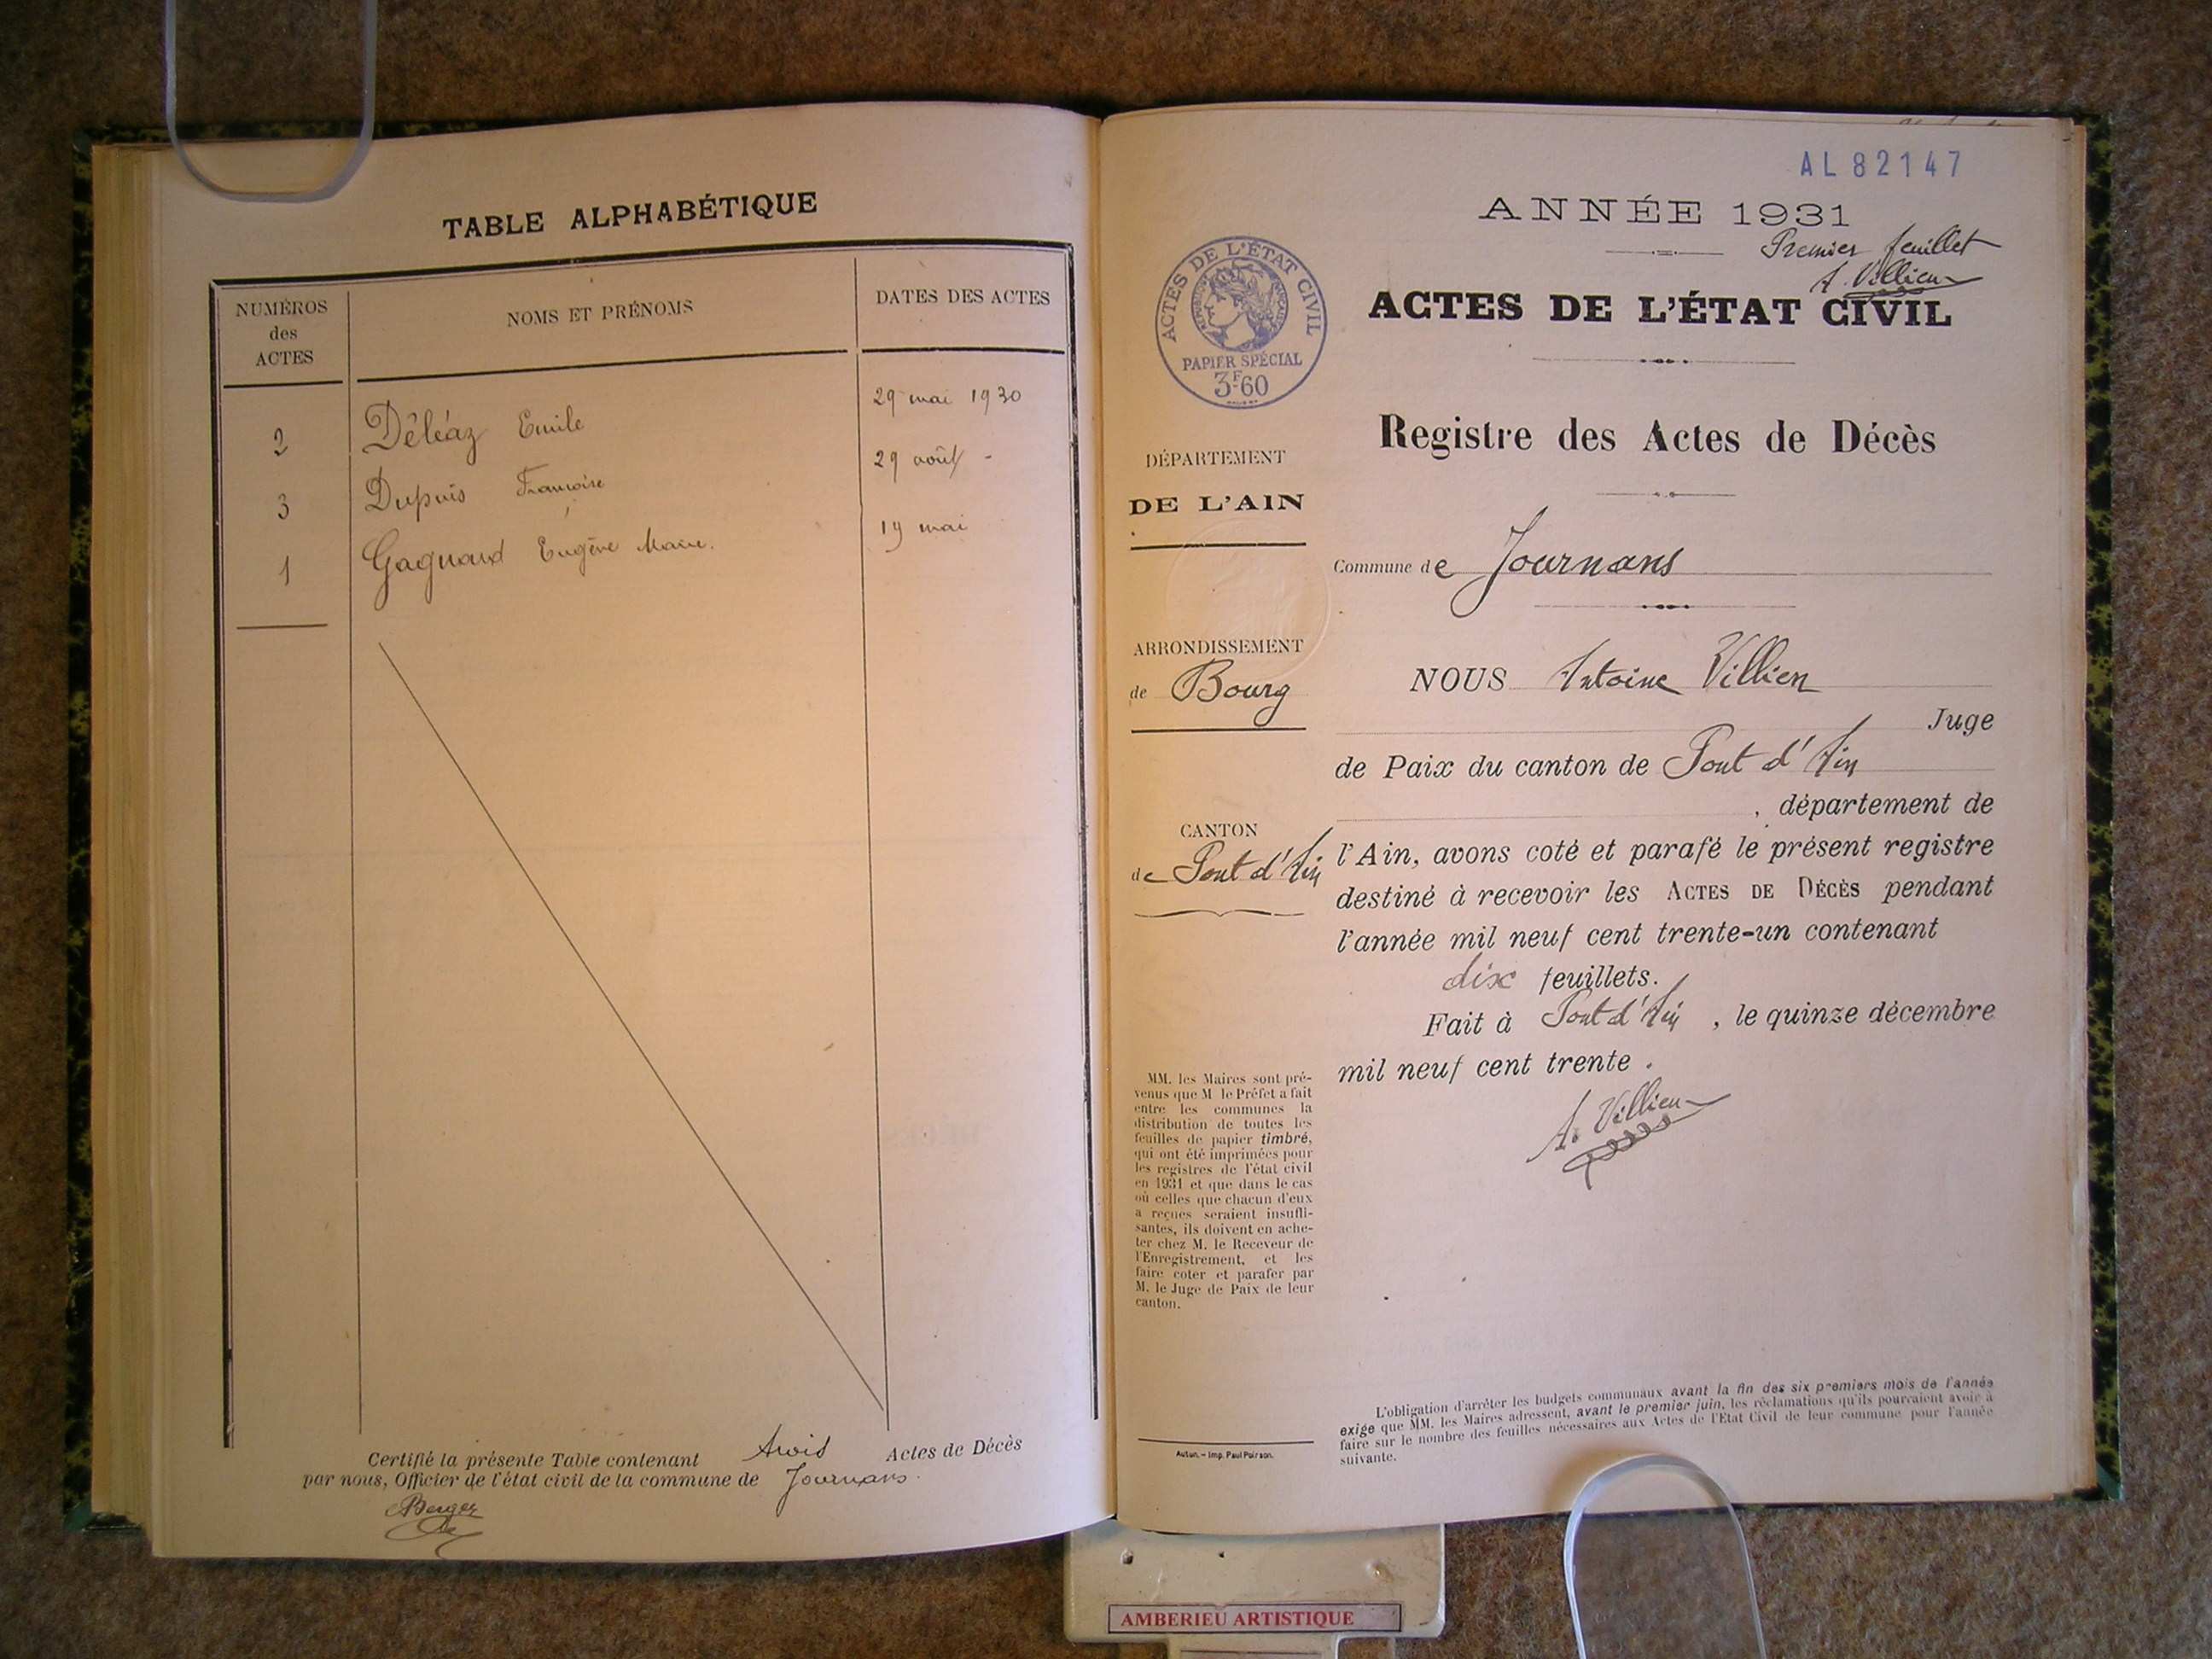 TABLE ALPHABÉTIQUE
NUMÉROS
des
ACTES
NOMS ET PRÉNOMS
DATES DES ACTES
2 Déléaz Emile 29 mai 1930
3 Dupuis Françoise 29 août -
1 Gagnaud Eugène Marie. 19 mai
Certifié la présente Table contenant trois Actes de Décès
par nous, Officier de l'état civil de la commune de Journans.
Berger
AL 82147
ANNÉE 1931
Premier feuillet
A. Villien
ACTES DE L'ÉTAT CIVIL
ACTES DE L'ÉTAT CIVIL
PAPIER SPÉCIAL
3F60
Registre des Actes de Décès
DÉPARTEMENT
DE L'AIN
Commune de Journans
ARRONDISSEMENT
de Bourg
CANTON
de Pont d'Ain
NOUS Antoine Villien
Juge
de Paix du canton de Pont d'Ain
, département de
l'Ain, avons coté et parafé le présent registre
destiné à recevoir les ACTES DE DÉCÈS pendant
l'année mil neuf cent trente-un contenant
dix feuillets.
Fait à Pont d'Ain, le quinze décembre
mil neuf cent trente.
A. Villien
MM. les Maires sont pré-
venus que M le Préfet a fait
entre les communes la
distribution de toutes les
feuilles de papier timbré,
qui ont été imprimées pour
les registres de l'état civil
en 1931 et que dans le cas
où celles que chacun d'eux
a reçues seraient insuffi-
santes, ils doivent en ache-
ter chez M. le Receveur de
l'Enregistrement, et les
faire coter et parafer par
M. le Juge de Paix de leur
canton.
Autun. – Imp. Paul Poirson.
L'obligation d'arrêter les budgets communaux avant la fin des six premiers mois de l'année
exige que MM. les Maires adressent, avant le premier juin, les réclamations qu'ils pourraient avoir à
faire sur le nombre des feuilles nécessaires aux Actes de l'Etat Civil de leur commune pour l'année
suivante.
AMBERIEU ARTISTIQUE